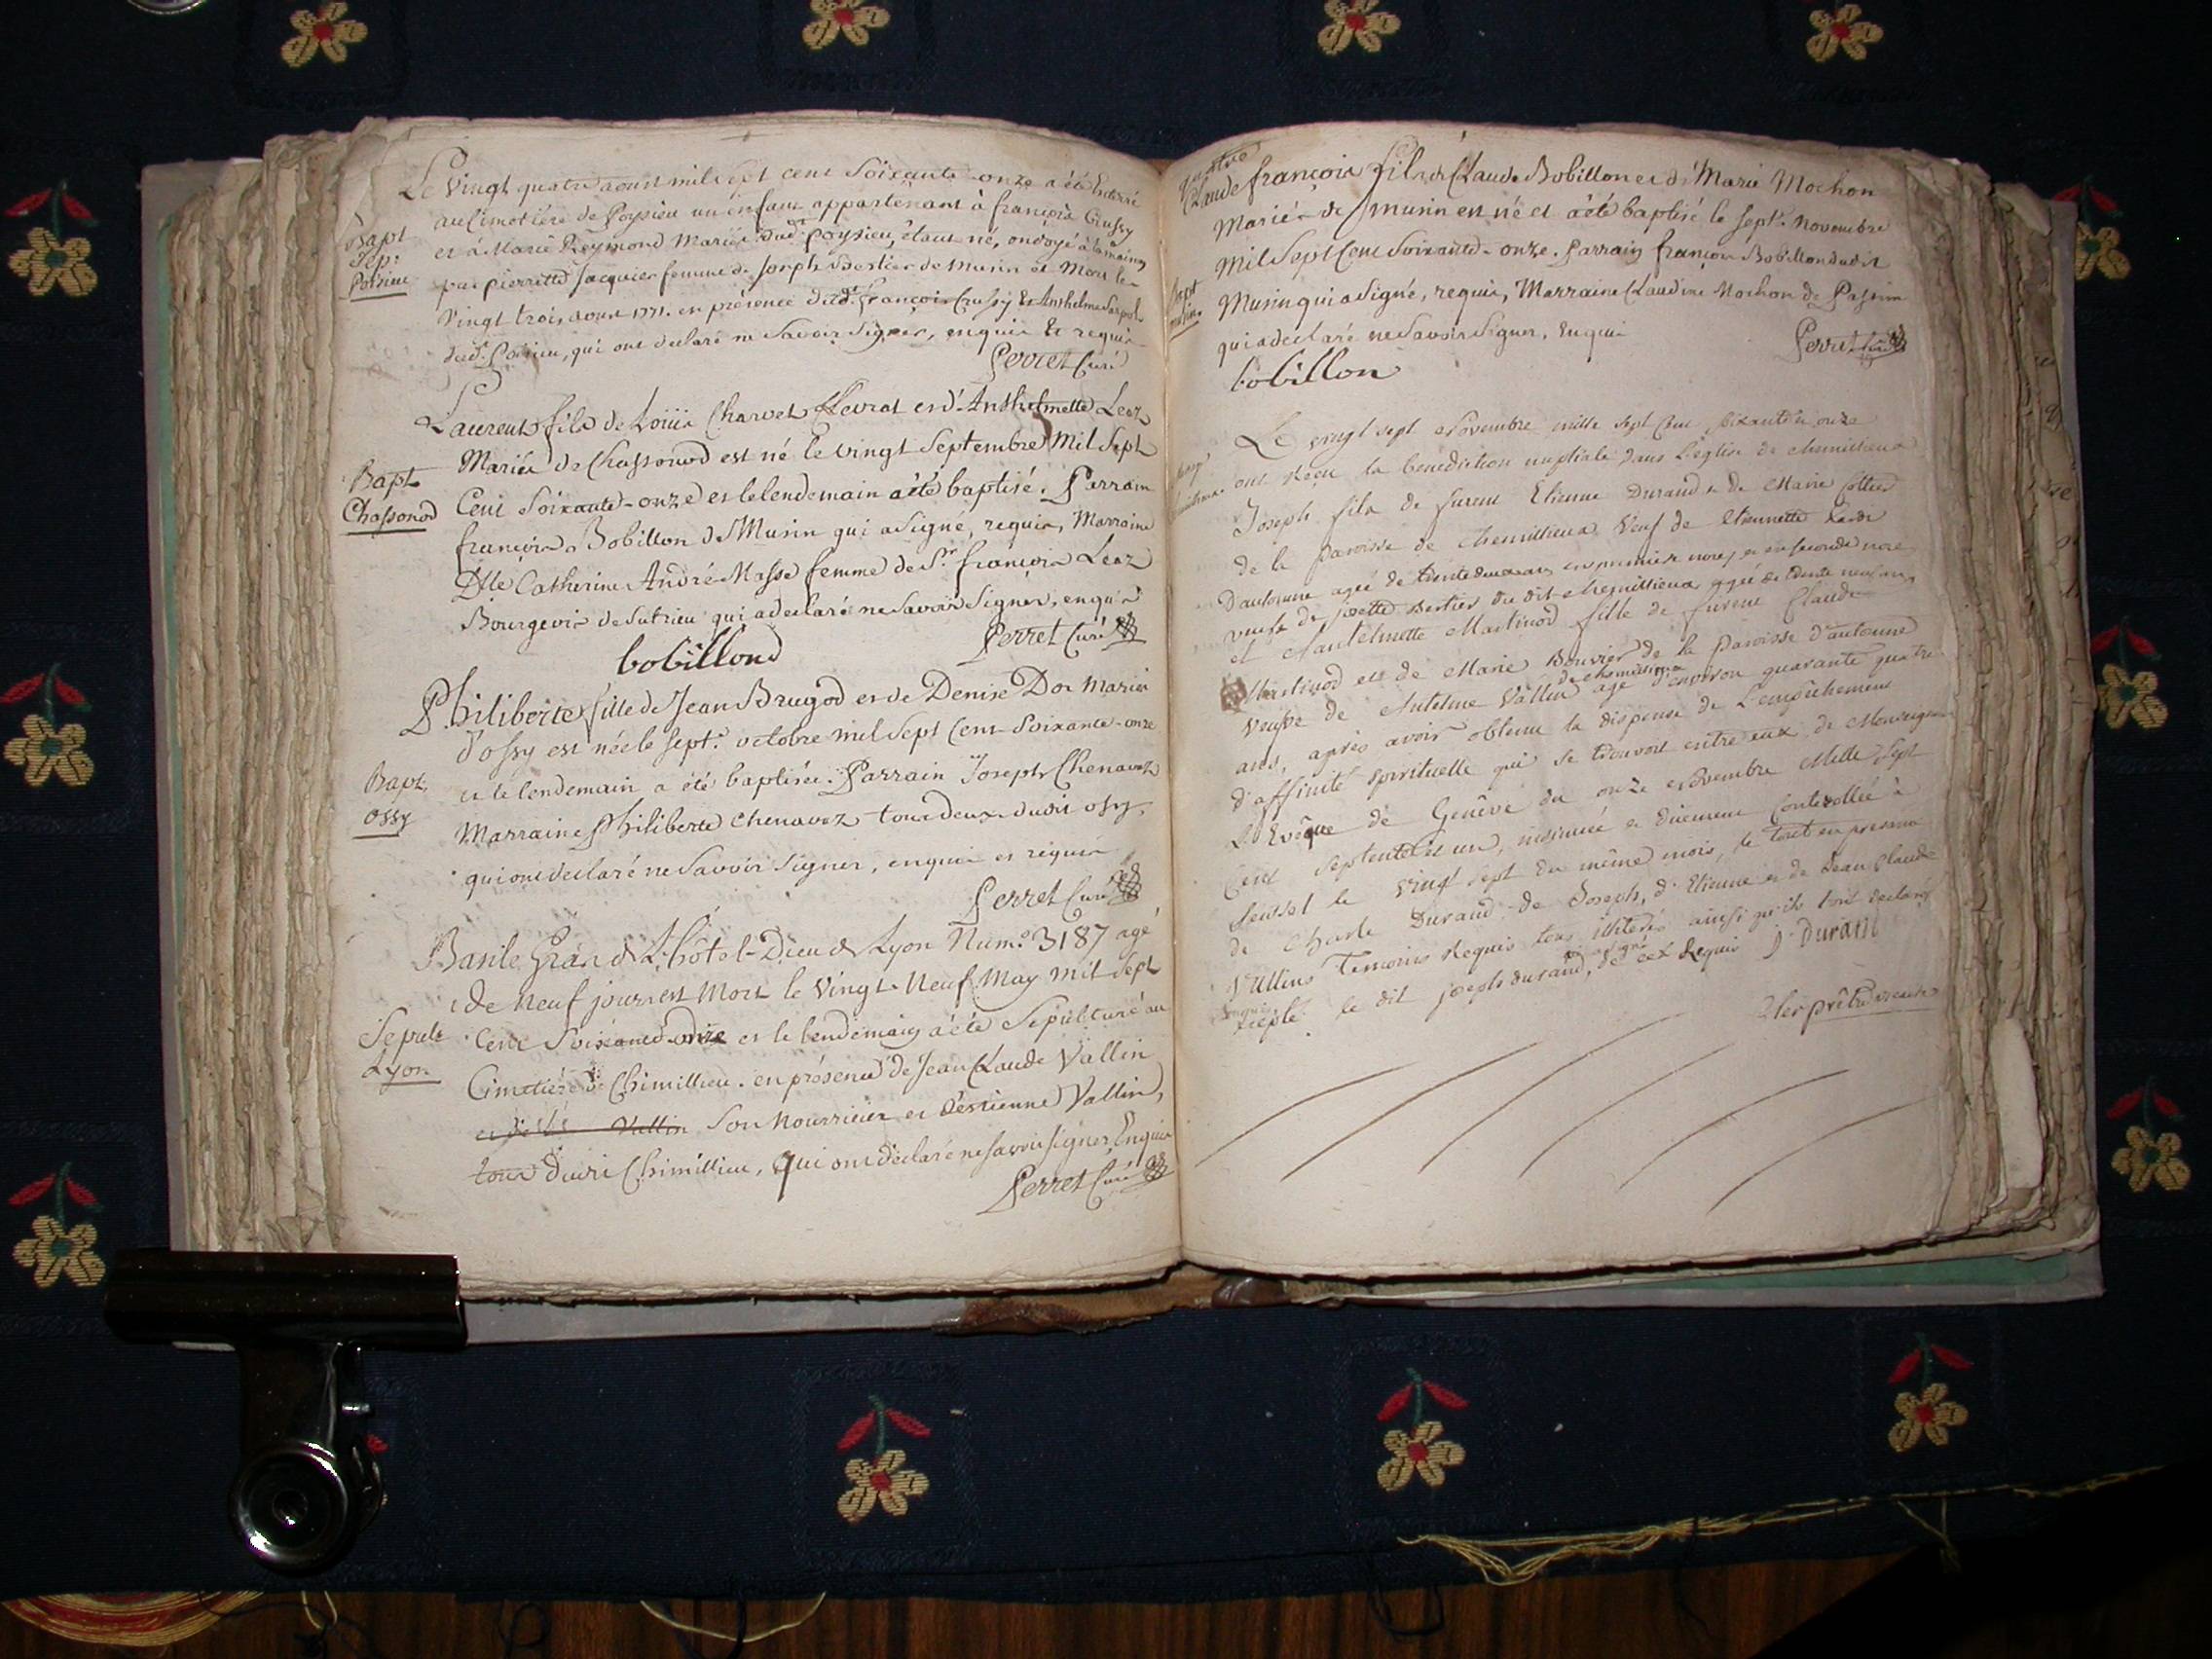 Le Vingt quatre aoust mil sept cent Soixante-onze a été Enterré
au Cimetiére de Poysieu un enfant appartenant à françois Crussy
Bapt
Sep.
Poisieu
et à Marie Reymond Mariés dud.t Poysieu, étant né, ondoyé à la maison
par pierrette Jacquier femme de Joseph Bertier de Musin et Mort le
Vingt trois aoust 1771. en présence dud.t françois Crussy & Anthelme
dud.t Poisieu, qui ont declaré ne Savoir Signer, enquis & requis
Perret Curé
Laurent fils de Loüis Charvet Clevrat et d'Anthelmette Leaz
Mariés de Chassonod est né le vingt Septembre Mil Sept
Bapt
Chassonod
Cent Soixante-onze et le lendemain a été baptisé. Parrain
françois Bobillon de Musin qui a Signé, requis, Marraine
Dlle Catherine André-Masse femme de Sr. françois Leaz
Bourgeois de Sutrieu qui a declaré ne Savoir Signer, enquis
Perret Curé
bobillond
Philiberte fille de Jean Brugod et de Denise Dor Mariés
d'ossy est née le sept.e octobre mil Sept Cent Soixante-onze
Bapt.
Ossy
et le lendemain a été baptisée. Parrain Joseph Chenavaz
Marraine Philiberte Chenavaz tous deux dudit ossy,
qui ont declaré ne Savoir Signer, enquis et requis
Perret Curé
Basile Grand L'hôtel-Dieu de Lyon Num.o 3187 agé
de neuf jours est Mort le Vingt-Neuf May mil Sept
Sepult
Lyon
Cent Soixante-onze et le lendemain a été Sepulturé au
Cimetiére de Chimillieu. en présence de Jean Claude Vallin
Vallin Son Nourricier et d'estienne Vallin,
tous dudit Chimillieu, qui ont déclaré ne Savoir Signer, Enquis
Perret Curé
Claude françois fils de Claude Bobillon et de Marie Mochon
Mariés de Musin est né et a été baptisé le sept.e Novembre
Mil Sept Cent Soixante-onze. Parrain françois Bobillon dudit
Bapt
Musin
Musin qui a Signé, requis, Marraine Claudine Mochon de Passin
qui a declaré ne Savoir Signer, Enquis
Perret Curé
bobillon
Le vingt sept Novembre mille sept Cent soixante onze
ont Reçu la bénédiction nuptiale dans L'eglise de chemillieux
Joseph fils de furent Etienne Durand & de Marie
de la paroisse de Chemillieux Veuf de Etiennette
D'autonne agé de trente deux ans en premier noces et en seconde noce
veufe de josette Bertier du dit chemillieux agée de trente neuf ans
et Antelmette Martinod fille de furent Claude
Martinod et de Marie Bouvier de la paroisse D'autonne
Veufve de Antelme Vallin de chemillieux agé d'environ quarante quatre
ans, après avoir obtenu la dispense de L'empêchement
d'affinité spirituelle qui se trouvoit entre eux de Monseigneur
L'Evêque de Genêve du onze Novembre Mille Sept
Cent Septente et un, insinuée et duement Controllée à
Seissel le vingt sept du même mois, le tout en presence
de Charle Durand de Joseph, d'Etienne et de Jean Claude
Vallins Temoins Requis tous illiterés ainsi qu'ils l'ont declaré
excepté le dit joseph durand, qui a signé de ce Requis J. Durant
prêtre vicaire